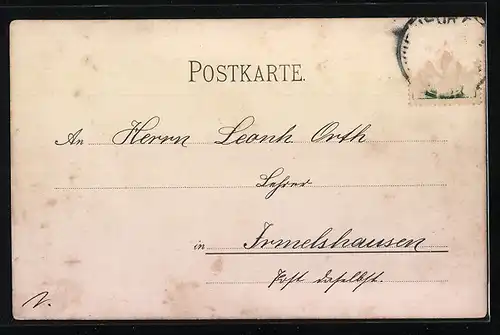 POSTKARTE.
An Herrn Leonh Orth
Lehrer
in Irmelshausen
Post daselbst.